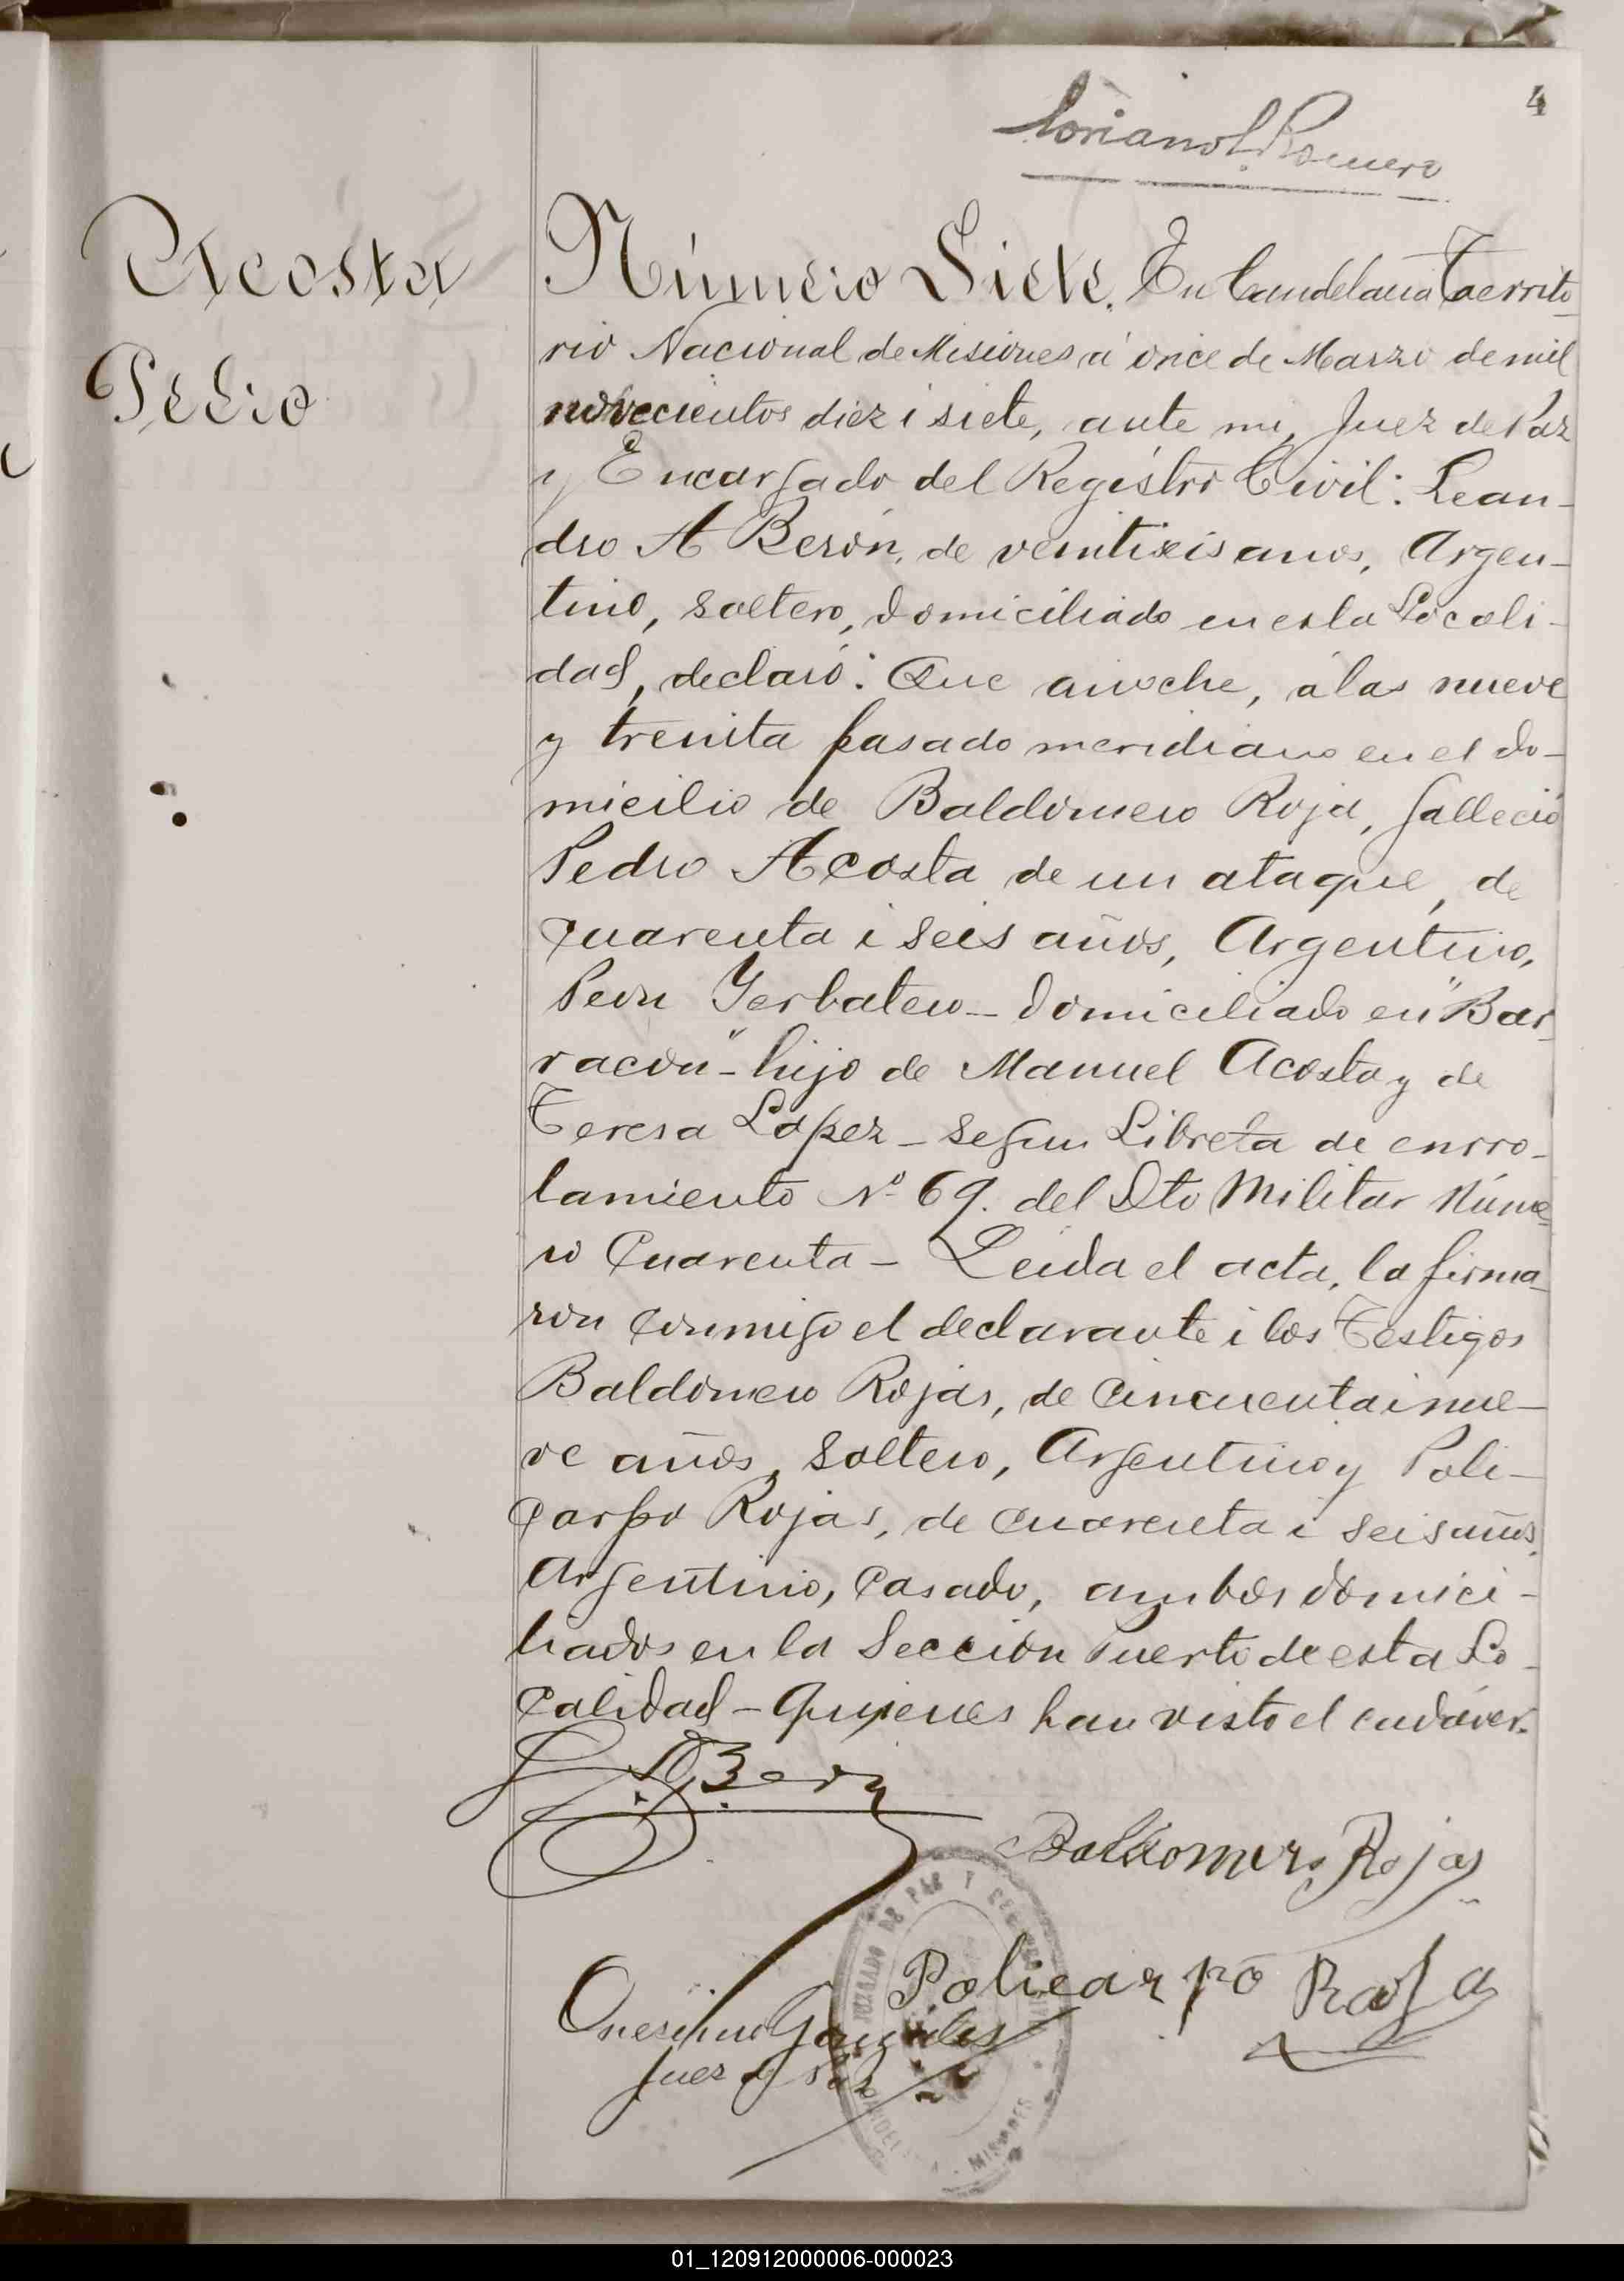 4
Loriano L. Romero
Acosta
Pedro
Número Siete. En Candelaria Territo-
rio Nacional de Misiones á once de Marzo de mil
novecientos diez i siete, ante mi, Juez de Paz
y Encargado del Registro Civil: Lean-
dro A Berón, de veintiseis anos, Argen-
tino, soltero, domiciliado en esta Locali-
dad, declaró: Que anoche, á las nueve
y treinta pasado meridiano en el do-
micilio de Baldomero Roja, falleció
Pedro Acosta de un ataque, de
quarenta i seis años, Argentino,
Peon Yerbatero - domiciliado en "Bar-
racon" - hijo de Manuel Acosta y de
Teresa Lopez - segun Libreta de enrro-
lamiento Nº 69. del Dto Militar Núme-
ro Cuarenta - Leida el acta, la firma-
ron conmigo el declarante i los Testigos
Baldomero Rojas, de cincuenta i nue-
ve años, soltero, Argentino y Poli-
carpo Rojas, de cuarenta i seis años,
Argentino, casado, ambos domici-
liados en la Sección Puerto de esta Lo-
calidad - quienes han visto el cadáver.
L. A. Berón
Baldomero Rojas
Policarpo Roja
Onesimo Gonzales
Juez de Paz
JUZGADO DE PAZ Y REGISTRO CIVIL
CANDELARIA - MISIONES
01_120912000006-000023